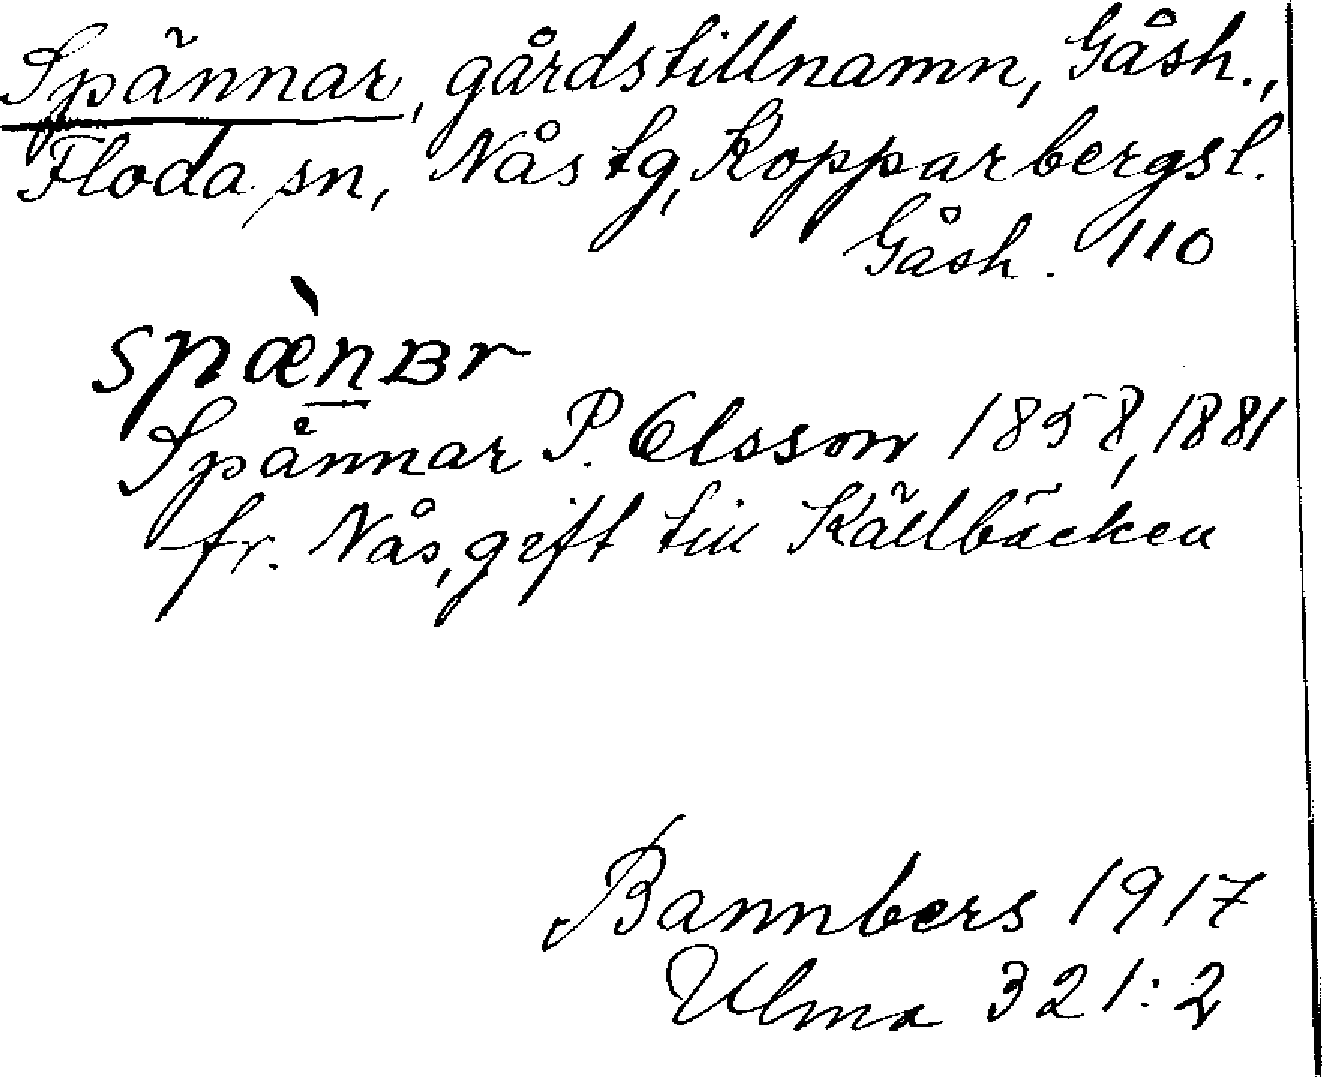 Spännar, gårdstillnamn, Gåsh.,
Floda sn, Nås tg, Kopparbergs l.
Gåsh. 110
spæ̀n̲ʙr
Spännar P. Elsson 1858, 1881
fr. Nås, gift till Källbäcken
Bannbers 1917
Ulma 321:2